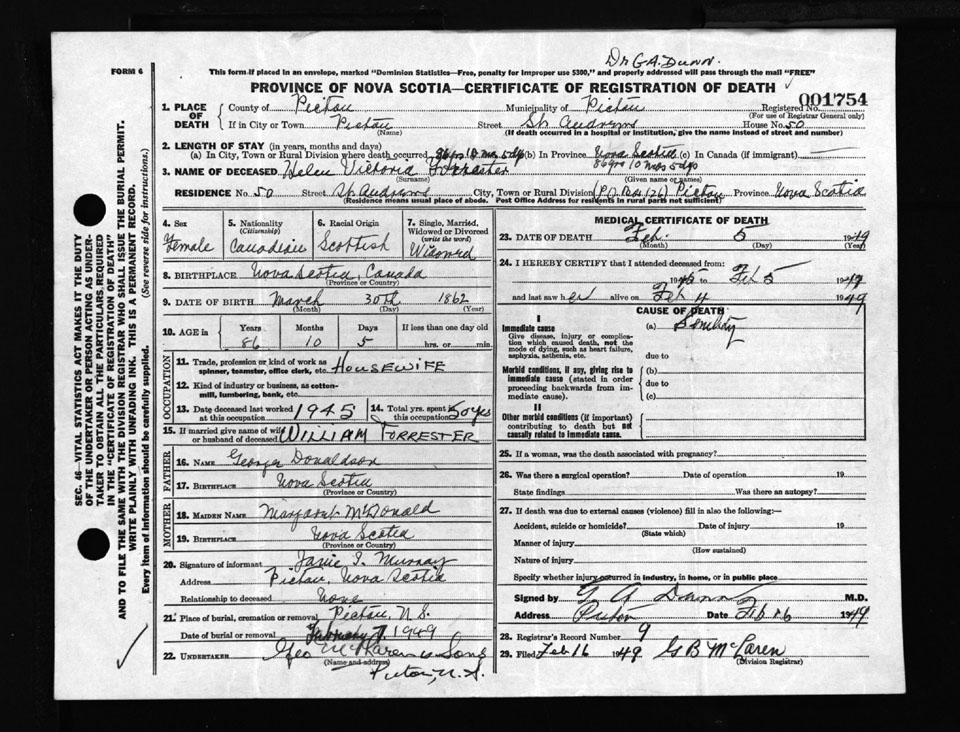 Dr G.A. Dunn.
FORM 6
This form if placed in an envelope, marked "Dominion Statistics—Free, penalty for improper use $300," and properly addressed will pass through the mail "FREE"
PROVINCE OF NOVA SCOTIA—CERTIFICATE OF REGISTRATION OF DEATH
001754
1. PLACE OF DEATH
County of Pictou Municipality of Pictou Registered No.
(For use of Registrar General only)
If in City or Town Pictou Street St. Andrews House No. 50
(Name) (If death occurred in a hospital or institution, give the name instead of street and number)
2. LENGTH OF STAY (in years, months and days)
(a) In City, Town or Rural Division where death occurred 86 yrs 10 mos 5 dys (b) In Province Nova Scotia (c) In Canada (if immigrant)
86 yrs 10 mos 5 dys
3. NAME OF DECEASED Helen Victoria Forrester
(Surname) (Given name or names)
RESIDENCE No. 50 Street St. Andrews City, Town or Rural Division (P.O. Box 126) Pictou Province Nova Scotia
(Residence means usual place of abode. Post Office Address for residents in rural parts not sufficient)
4. Sex
Female
5. Nationality
(Citizenship)
Canadian
6. Racial Origin
Scottish
7. Single, Married, Widowed or Divorced
(write the word)
Widowed
8. BIRTHPLACE Nova Scotia, Canada
(Province or Country)
9. DATE OF BIRTH March 30th 1862
(Month) (Day) (Year)
10. AGE in
Years Months Days If less than one day old
86 10 5 hrs. or min.
OCCUPATION
11. Trade, profession or kind of work as spinner, teamster, office clerk, etc. HOUSEWIFE
12. Kind of industry or business, as cotton-mill, lumbering, bank, etc.
13. Date deceased last worked at this occupation 1945
14. Total yrs. spent in this occupation 50 yrs
15. If married give name of wife or husband of deceased WILLIAM FORRESTER
FATHER
16. NAME George Donaldson
17. BIRTHPLACE Nova Scotia
(Province or Country)
MOTHER
18. MAIDEN NAME Margaret McDonald
19. BIRTHPLACE Nova Scotia
(Province or Country)
20. Signature of informant Janie I. Murray
Address Pictou, Nova Scotia
Relationship to deceased None
21. Place of burial, cremation or removal Pictou, N.S.
Date of burial or removal February 7, 1949
22. UNDERTAKER Geo McLaren & Sons
(Name and address)
Pictou, N.S.
MEDICAL CERTIFICATE OF DEATH
23. DATE OF DEATH Feb. 5 1949
(Month) (Day) (Year)
24. I HEREBY CERTIFY that I attended deceased from:
1945 to Feb 5 1949
and last saw her alive on Feb 4 1949
CAUSE OF DEATH
I
Immediate cause
Give disease, injury or complication which caused death, not the mode of dying, such as heart failure, asphyxia, asthenia, etc.
(a) Senility
due to
Morbid conditions, if any, giving rise to immediate cause (stated in order proceeding backwards from immediate cause).
(b)
due to
(c)
II
Other morbid conditions (if important) contributing to death but not causally related to immediate cause.
25. If a woman, was the death associated with pregnancy?
26. Was there a surgical operation? Date of operation 19
State findings Was there an autopsy?
27. If death was due to external causes (violence) fill in also the following:—
Accident, suicide or homicide? Date of injury 19
(State which)
Manner of injury
(How sustained)
Nature of injury
Specify whether injury occurred in industry, in home, or in public place
Signed by G A Dunn M.D.
Address Pictou Date Feb 16 1949
28. Registrar's Record Number 9
29. Filed Feb 16 1949 G B McLaren
(Division Registrar)
SEC. 46—VITAL STATISTICS ACT MAKES IT THE DUTY
OF THE UNDERTAKER OR PERSON ACTING AS UNDER-
TAKER TO OBTAIN ALL THE PARTICULARS REQUIRED
IN THE "CERTIFICATE OF REGISTRATION OF DEATH"
AND TO FILE THE SAME WITH THE DIVISION REGISTRAR WHO SHALL ISSUE THE BURIAL PERMIT.
WRITE PLAINLY WITH UNFADING INK. THIS IS A PERMANENT RECORD.
Every item of information should be carefully supplied. (See reverse side for instructions.)